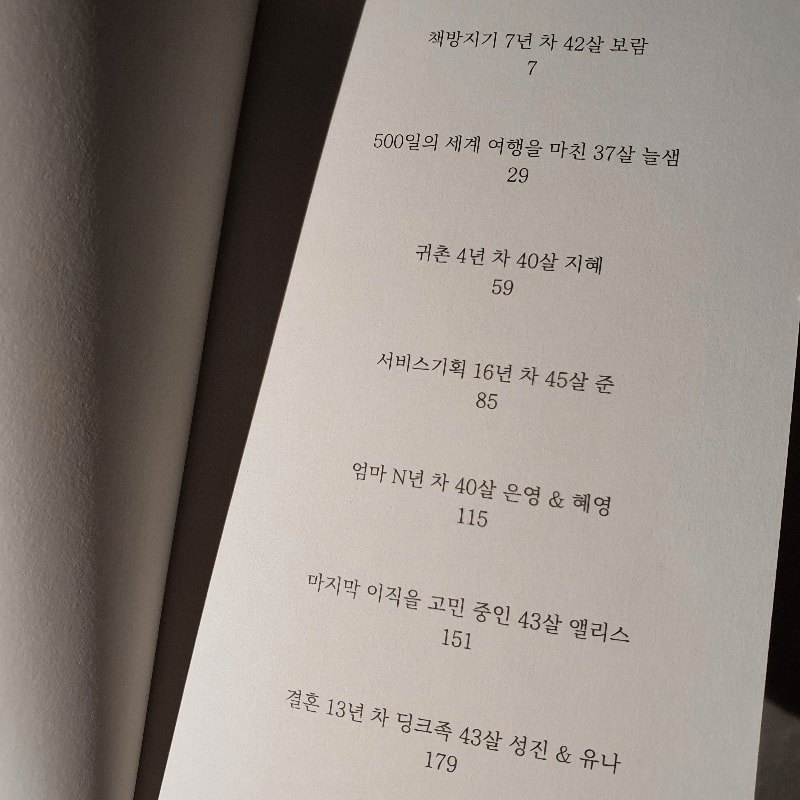 책방지기 7년 차 42살 보람
7
500일의 세계 여행을 마친 37살 늘샘
29
귀촌 4년 차 40살 지혜
59
서비스기획 16년 차 45살 준
85
엄마 N년 차 40살 은영 & 혜영
115
마지막 이직을 고민 중인 43살 앨리스
151
결혼 13년 차 딩크족 43살 성진 & 유나
179